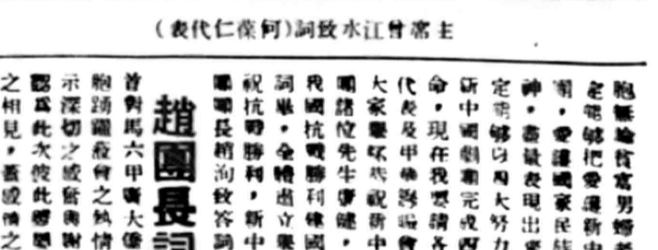 主席曾江水致詞(何葆仁代表)
胞無論貧富男婦
定能够把愛護新
團,愛護國家民
神,盡量表現出
定能够以四大努力
新中國劇團完成
命,現在我要請各
代表及中華總會
大家舉杯恭祝新中
團諸位先生康健,
我國抗戰勝利建國
詞畢,全體起立舉
祝抗戰勝利,新中
團團長趙洵致答詞
趙團長詞
首對馬六甲廣大僑
胞踴躍會之熱情
示深切之感奮與謝
認為此次彼此
之相見,蓋感情之